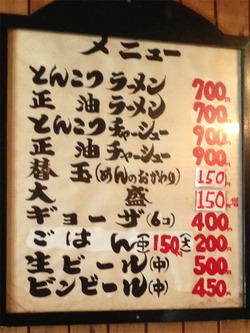 メニュー
とんこつラーメン 700円
正油ラーメン 700円
とんこつチャーシュー 900円
正油チャーシュー 900円
替玉(めんのおかわり) 150円
大盛 150円
ギョーザ(6コ) 400円
ごはん 中150円 大200円
生ビール(中) 500円
ビンビール(中) 450円